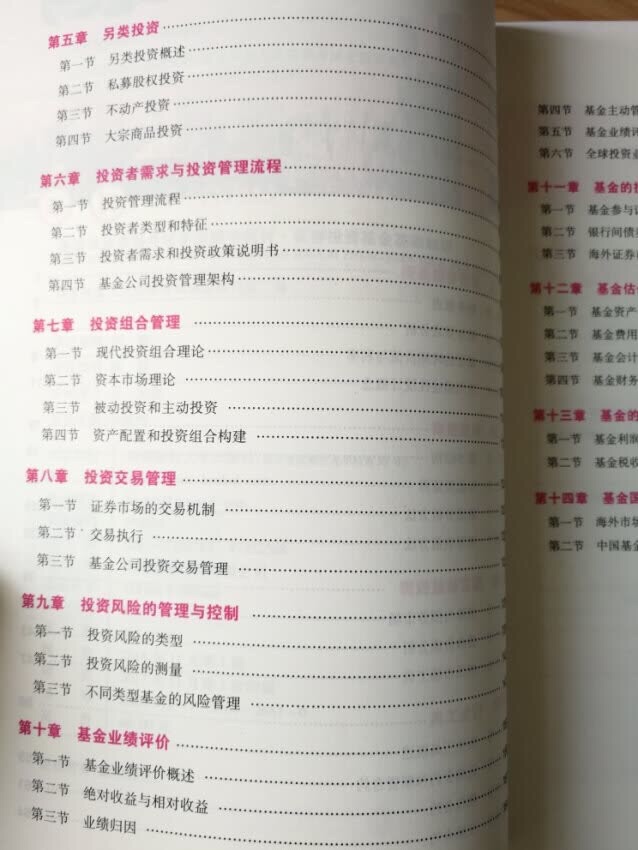 第五章 另类投资
第一节 另类投资概述
第二节 私募股权投资
第三节 不动产投资
第四节 大宗商品投资
第六章 投资者需求与投资管理流程
第一节 投资管理流程
第二节 投资者类型和特征
第三节 投资者需求和投资政策说明书
第四节 基金公司投资管理架构
第七章 投资组合管理
第一节 现代投资组合理论
第二节 资本市场理论
第三节 被动投资和主动投资
第四节 资产配置和投资组合构建
第八章 投资交易管理
第一节 证券市场的交易机制
第二节 交易执行
第三节 基金公司投资交易管理
第九章 投资风险的管理与控制
第一节 投资风险的类型
第二节 投资风险的测量
第三节 不同类型基金的风险管理
第十章 基金业绩评价
第一节 基金业绩评价概述
第二节 绝对收益与相对收益
第三节 业绩归因
第四节 基金主动管
第五节 基金业绩评
第六节 全球投资业
第十一章 基金的投
第一节 基金参与证
第二节 银行间债
第三节 海外证券
第十二章 基金估
第一节 基金资产
第二节 基金费用
第三节 基金会计
第四节 基金财务
第十三章 基金的
第一节 基金利润
第二节 基金税收
第十四章 基金国
第一节 海外市场
第二节 中国基金